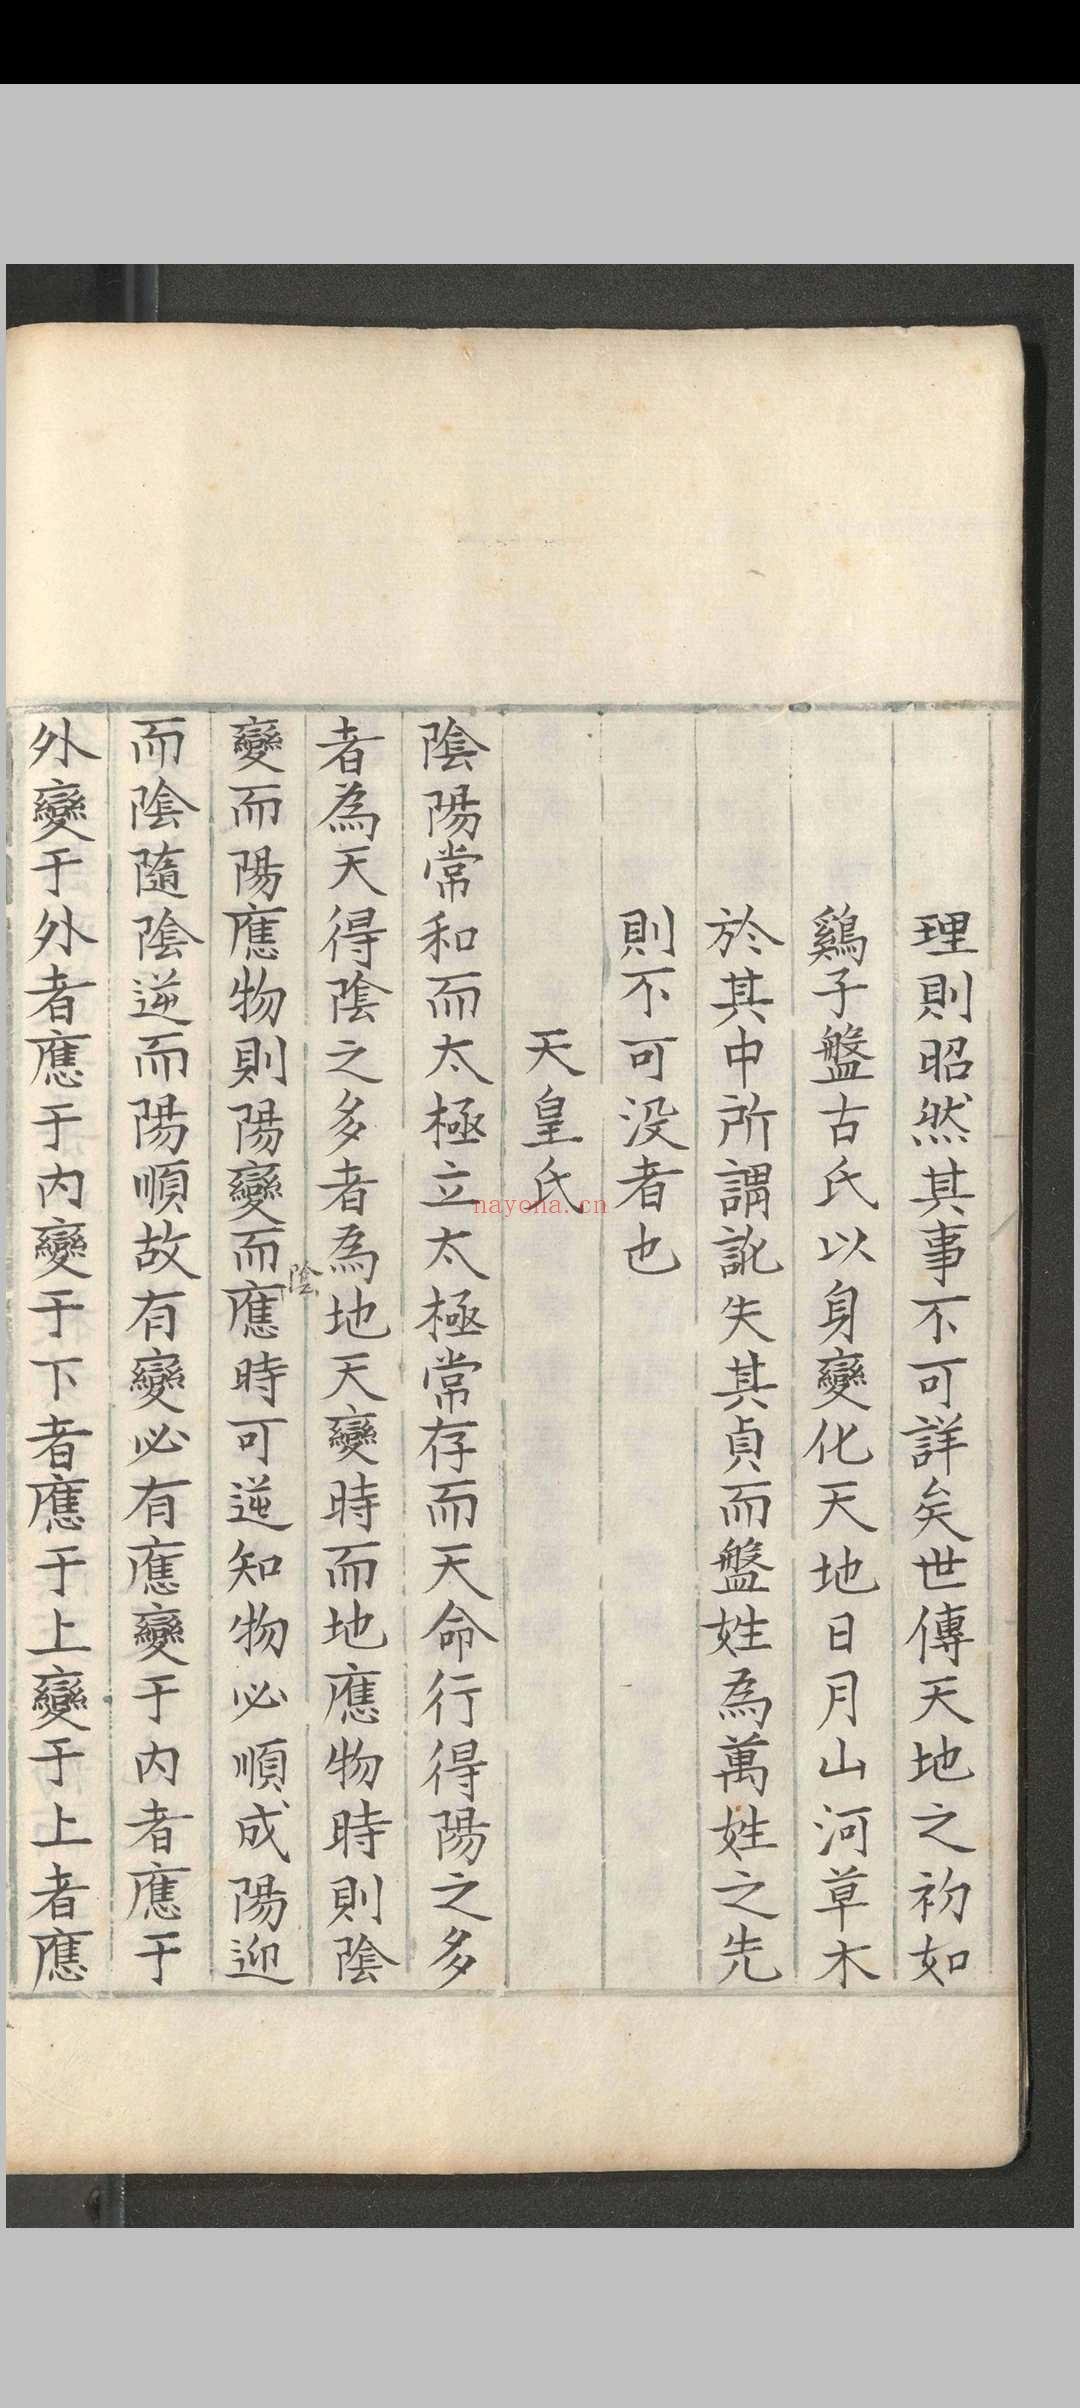 理則昭然其事不可詳矣世傳天地之初如
鷄子盤古氏以身變化天地日月山河草木
於其中所謂訛失其貞而盤姓為萬姓之先
則不可没者也
天皇氏
陰陽常和而太極立太極常存而天命行得陽之多
者為天得陰之多者為地天變時而地應物時則陰
變而陽應物則陽變而陰應時可逆知物必順成陽迎
而陰隨陰逆而陽順故有變必有應變于内者應于
外變于外者應于内變于下者應于上變于上者應
nayona.cn